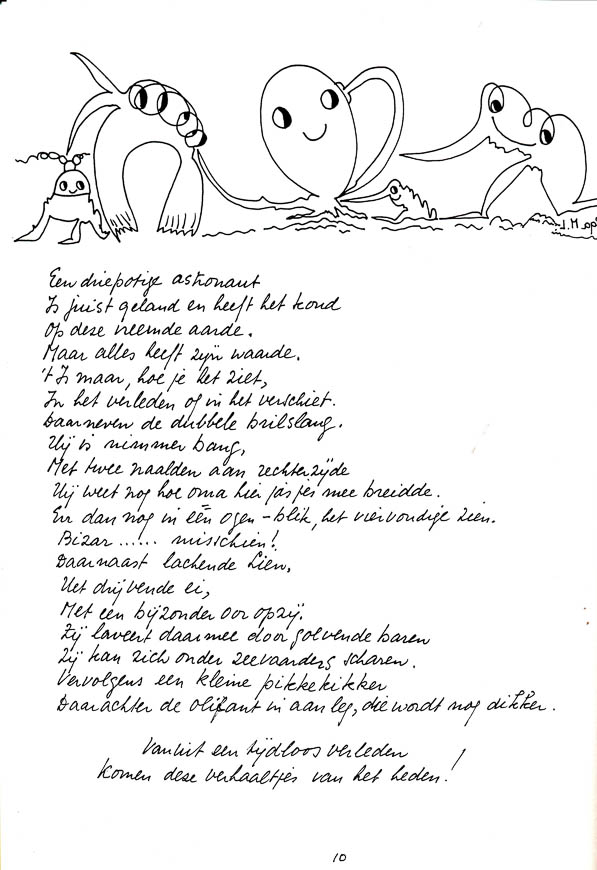 Een driepotige astronaut
Is juist geland en heeft het koud
Op deze vreemde aarde.
Maar alles heeft zijn waarde.
't Is maar, hoe je het ziet,
In het verleden of in het verschiet.
Daarneven de dubbele brilslang.
Hij is nimmer bang,
Met twee naalden aan rechterzijde
Hij weet nog hoe oma hier jasjes mee breidde.
En dan nog in één ogen-blik, het viervoudige zien.
Bizar ...... misschien!
Daarnaast lachende Lien,
Het drijvende ei,
Met een bijzonder oor opzij.
Zij laveert daarmee door golvende baren
Zij kan zich onder zeevaarders scharen.
Vervolgens een kleine pikkekikker
Daarachter de olifant in aanleg, die wordt nog dikker.
Vanuit een tijdloos verleden
Komen deze verhaaltjes van het heden!
10